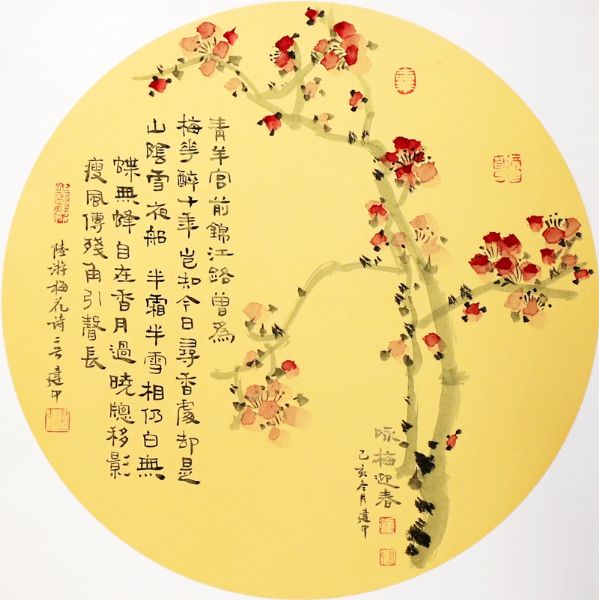 青羊宮前錦江路曾為
梅華醉十年豈知今日尋香處却是
山陰雪夜船 半霜半雪相仍白無
蝶無蜂自在香月過曉牕移影
瘦風傳殘角引聲長
陸游梅花诗二首建中
咏梅迎春
己亥冬月建中